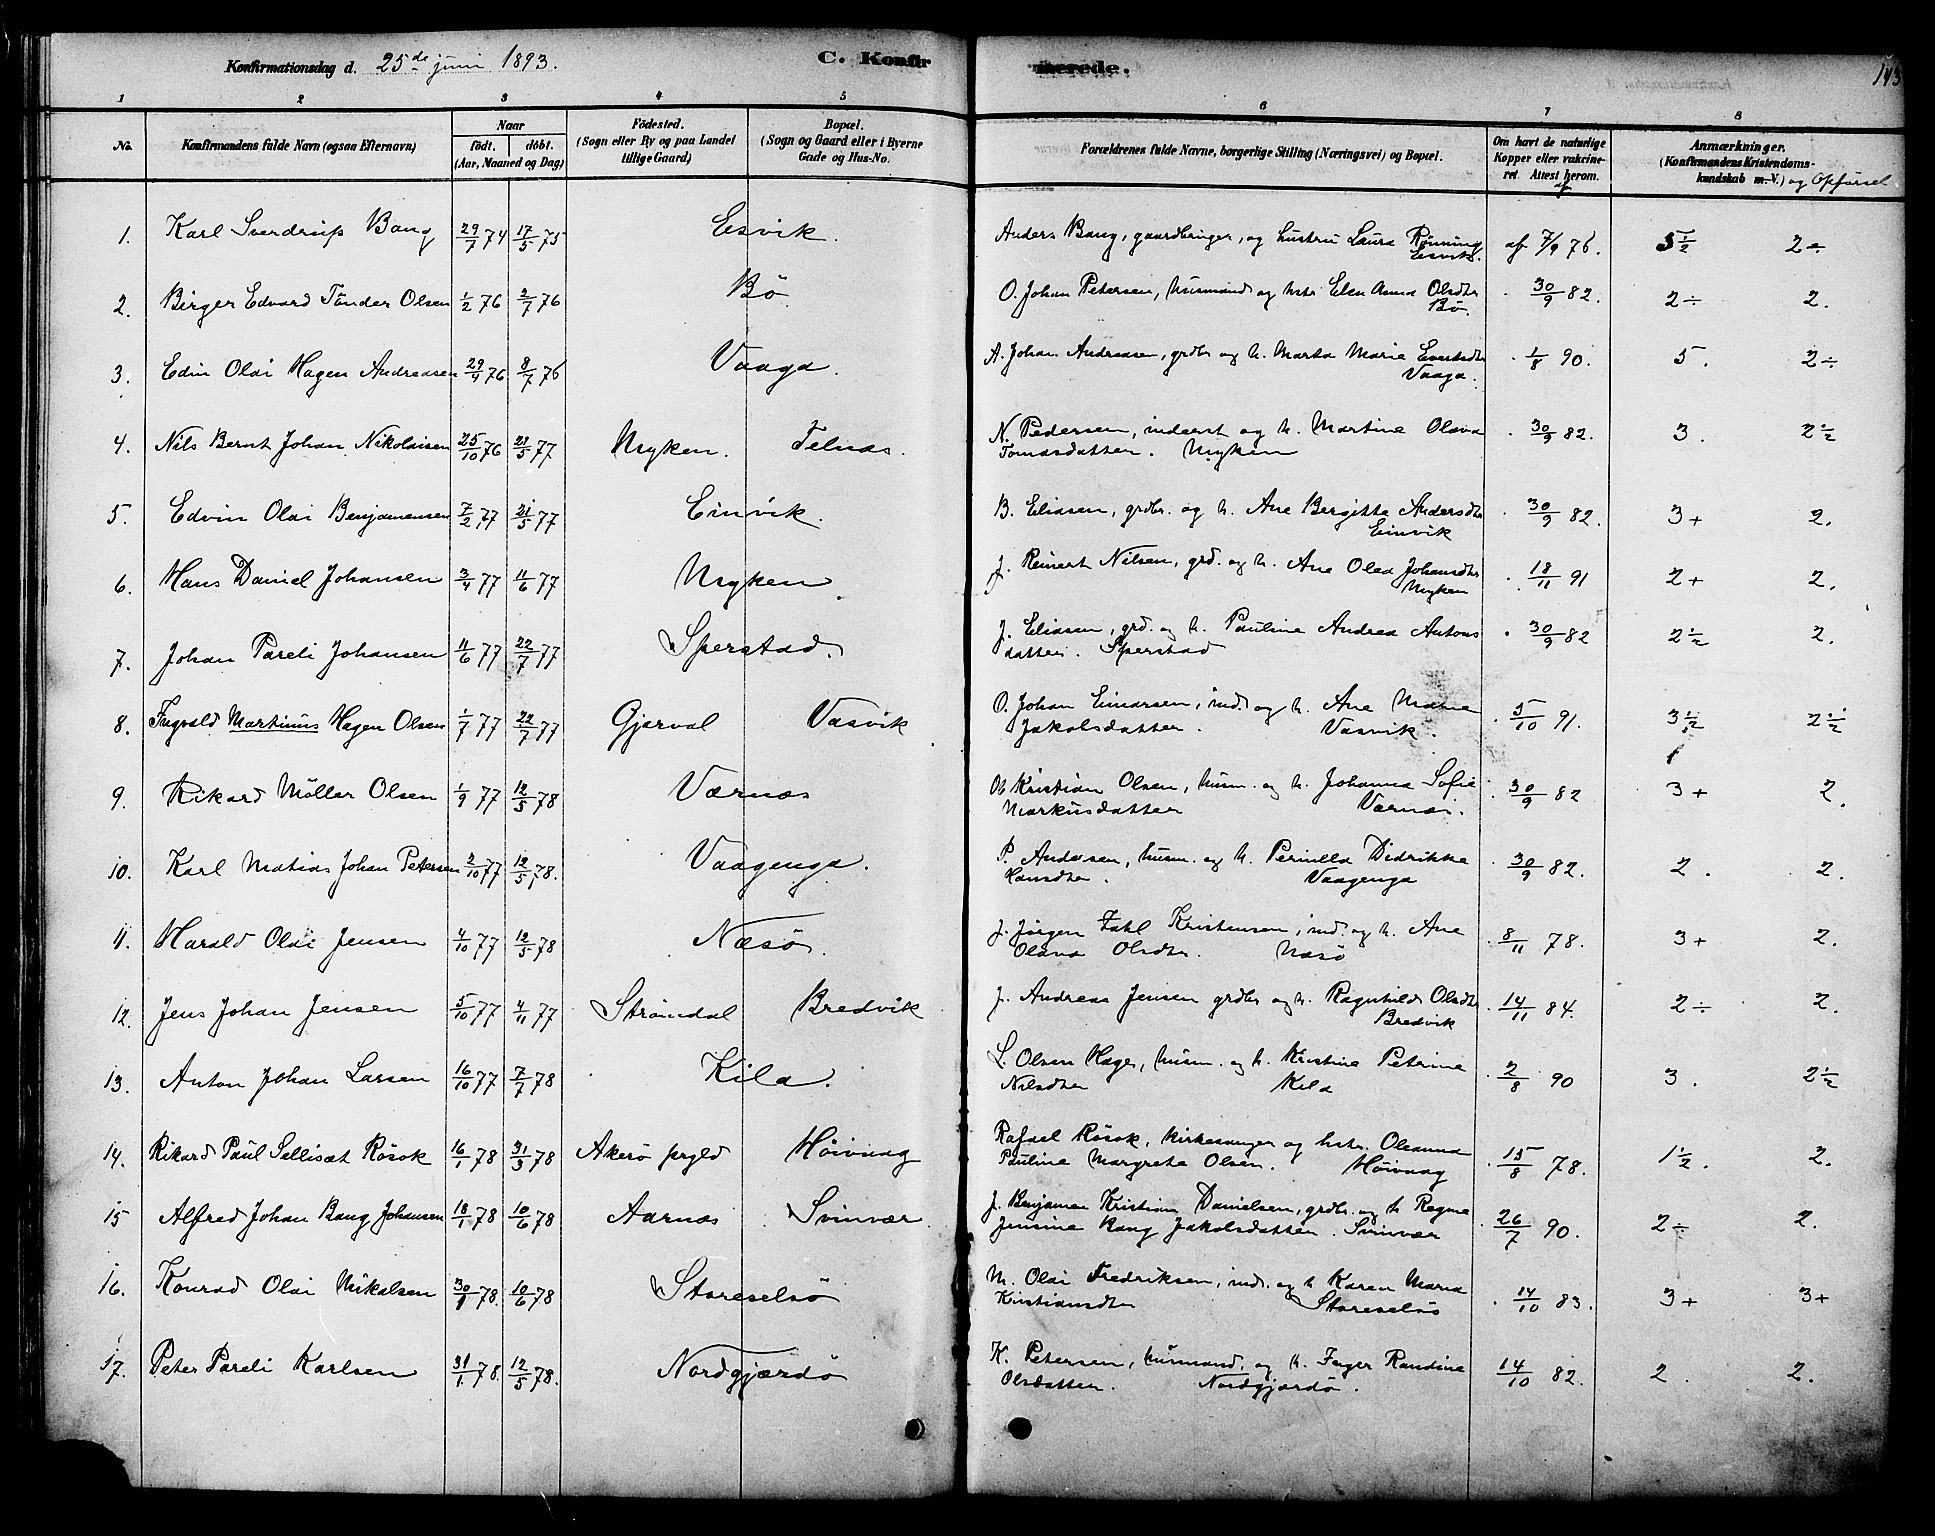 Konfirmationsdag d. 25de juni 1893. C. Konfirmerede. 143
1 2 3 4 5 6 7 8
No. Konfirmandens fulde Navn (ogsaa Efternavn) Naar født. døbt. (Aar, Maaned og Dag) Fødested. (Sogn eller By og paa Landet tillige Gaard) Bopæl. (Sogn og Gaard eller i Byerne Gade og Hus-No. Forældrenes fulde Navne, borgerlige Stilling (Næringsvei) og Bopæl. Om havt de naturlige Kopper eller vakcineret. Attest herom. af Anmærkninger. (Konfirmandens Kristendomskundskab m. V.) og Opførsel
1. Karl Sverdrup Bang 29/7 74 17/5 75 Esvik. Anders Bang, gaardbruger, og hustru Laura Rønning af 7/9 76. 5 1/2 2÷
Esvik.
2. Birger Edvard Tønder Olsen 1/2 76 2/7 76 Bö O. Johan Petersen, husmand og hstr Elen Anna Olsdtr . 30/9 82. 2÷ 2.
Bö.
3. Edin Olai Hagen Andreasen 29/4 76 8/7 76 Vaaga. A. Johan Andreasen, grdbr og h. Marta Marie Evertsdtr . 1/8 90. 5. 2÷
Vaaga.
4. Nils Bernt Johan Nikolaisen 25/10 76 21/5 77 Myken. Telnæs. N. Pedersen, inderst og h. Martine Olava . 30/9 82. 3. 2 1/2
Tomasdatter. Myken
5. Edvin Olai Benjamensen 7/2 77 21/5 77 Einvik. B. Eliasen, grdbr. og h. Ane Bergitte Andersdtr . 30/9 82. 3+ 2.
Einvik
6. Hans Daniel Johansen 3/4 77 11/6 77 Myken. J. Reinert Nilsen, grd. og h. Ane Olea Johansdtr . 18/11 91 2+ 2.
Myken
7. Johan Pareli Johansen 11/6 77 22/7 77 Sperstad. J. Eliasen, grd. og h. Pauline Andrea Antons . 30/9 82 2 1/2 2.
datter. Sperstad
8. Ingvald Martinus Hagen Olsen 1/7 77 22/7 77 Gjerval Vasvik O. Johan Einarsen, ind. og h. Ane Marie . 5/10 91. 3 1/2 2 1/2
Jakobsdatter. Vasvik.
9. Rikard Möller Olsen 1/9 77 12/5 78 Værnæs Ol. Kristian Olsen, husm. og h. Johanna Sofie . 30/9 82 3+ 2.
Markusdatter Værnæs.
10. Karl Matias Johan Petersen 2/10 77 12/5 78. Vaagenga. P. Andersen, husm. og h. Pernilla Didrikke . 30/9 82. 2. 2.
Hansdtr. Vaagenga
11. Harald Olai Jensen 4/10 77 12/5 78 Næsö. J. Jörgen Zahl Kristensen, ind. og h. Ane . 8/11 78. 3+ 2.
Olava Olsdtr. Næsö
12. Jens Johan Jensen 5/10 77 4/11 77 Strømdal Bredvik J. Andreas Jensen grdbr og h. Ragnhild Olsdtr . 14/11 84. 2÷ 2.
Bredvik
13. Anton Johan Larsen 16/10 77 7/7 78 Kila. L. Olsen Hage, husm. og h. Kristine Petrine . 2/8 90 3. 2 1/2
Nilsdtr Kila
14. Rikard Paul Sellisæt Røsok 16/1 78 31/3 78 Akerø prgld Höivaag Rafael Røsok, kirkesanger og hstr. Oleanna . 15/8 78. 1 1/2. 2.
Pauline Margrete Olsen. Höivaag
15 Alfred Johan Bang Johansen 18/1 78 10/6 78 Aarnæs Svinvær. J. Benjamen Kristian Danielsen, grdbr. og h Regine . 26/7 90. 2÷ 2.
Jensine Bang Jakobsdatter. Svinvær
16. Konrad Olai Mikalsen 30/1 78. 10/6 78 Storeselsö M. Olai Fredriksen, inds. og h Karen Maria . 14/10 83. 3+ 3+
Kristiansdtr Storeselsö
17. Peter Pareli Karlsen 31/1 78. 12/5 78. Nordgjærdö K. Petersen, husmand, og h. Inger Randine 14/10 82. 2. 2.
Olsdatter. Nordgjærdö.